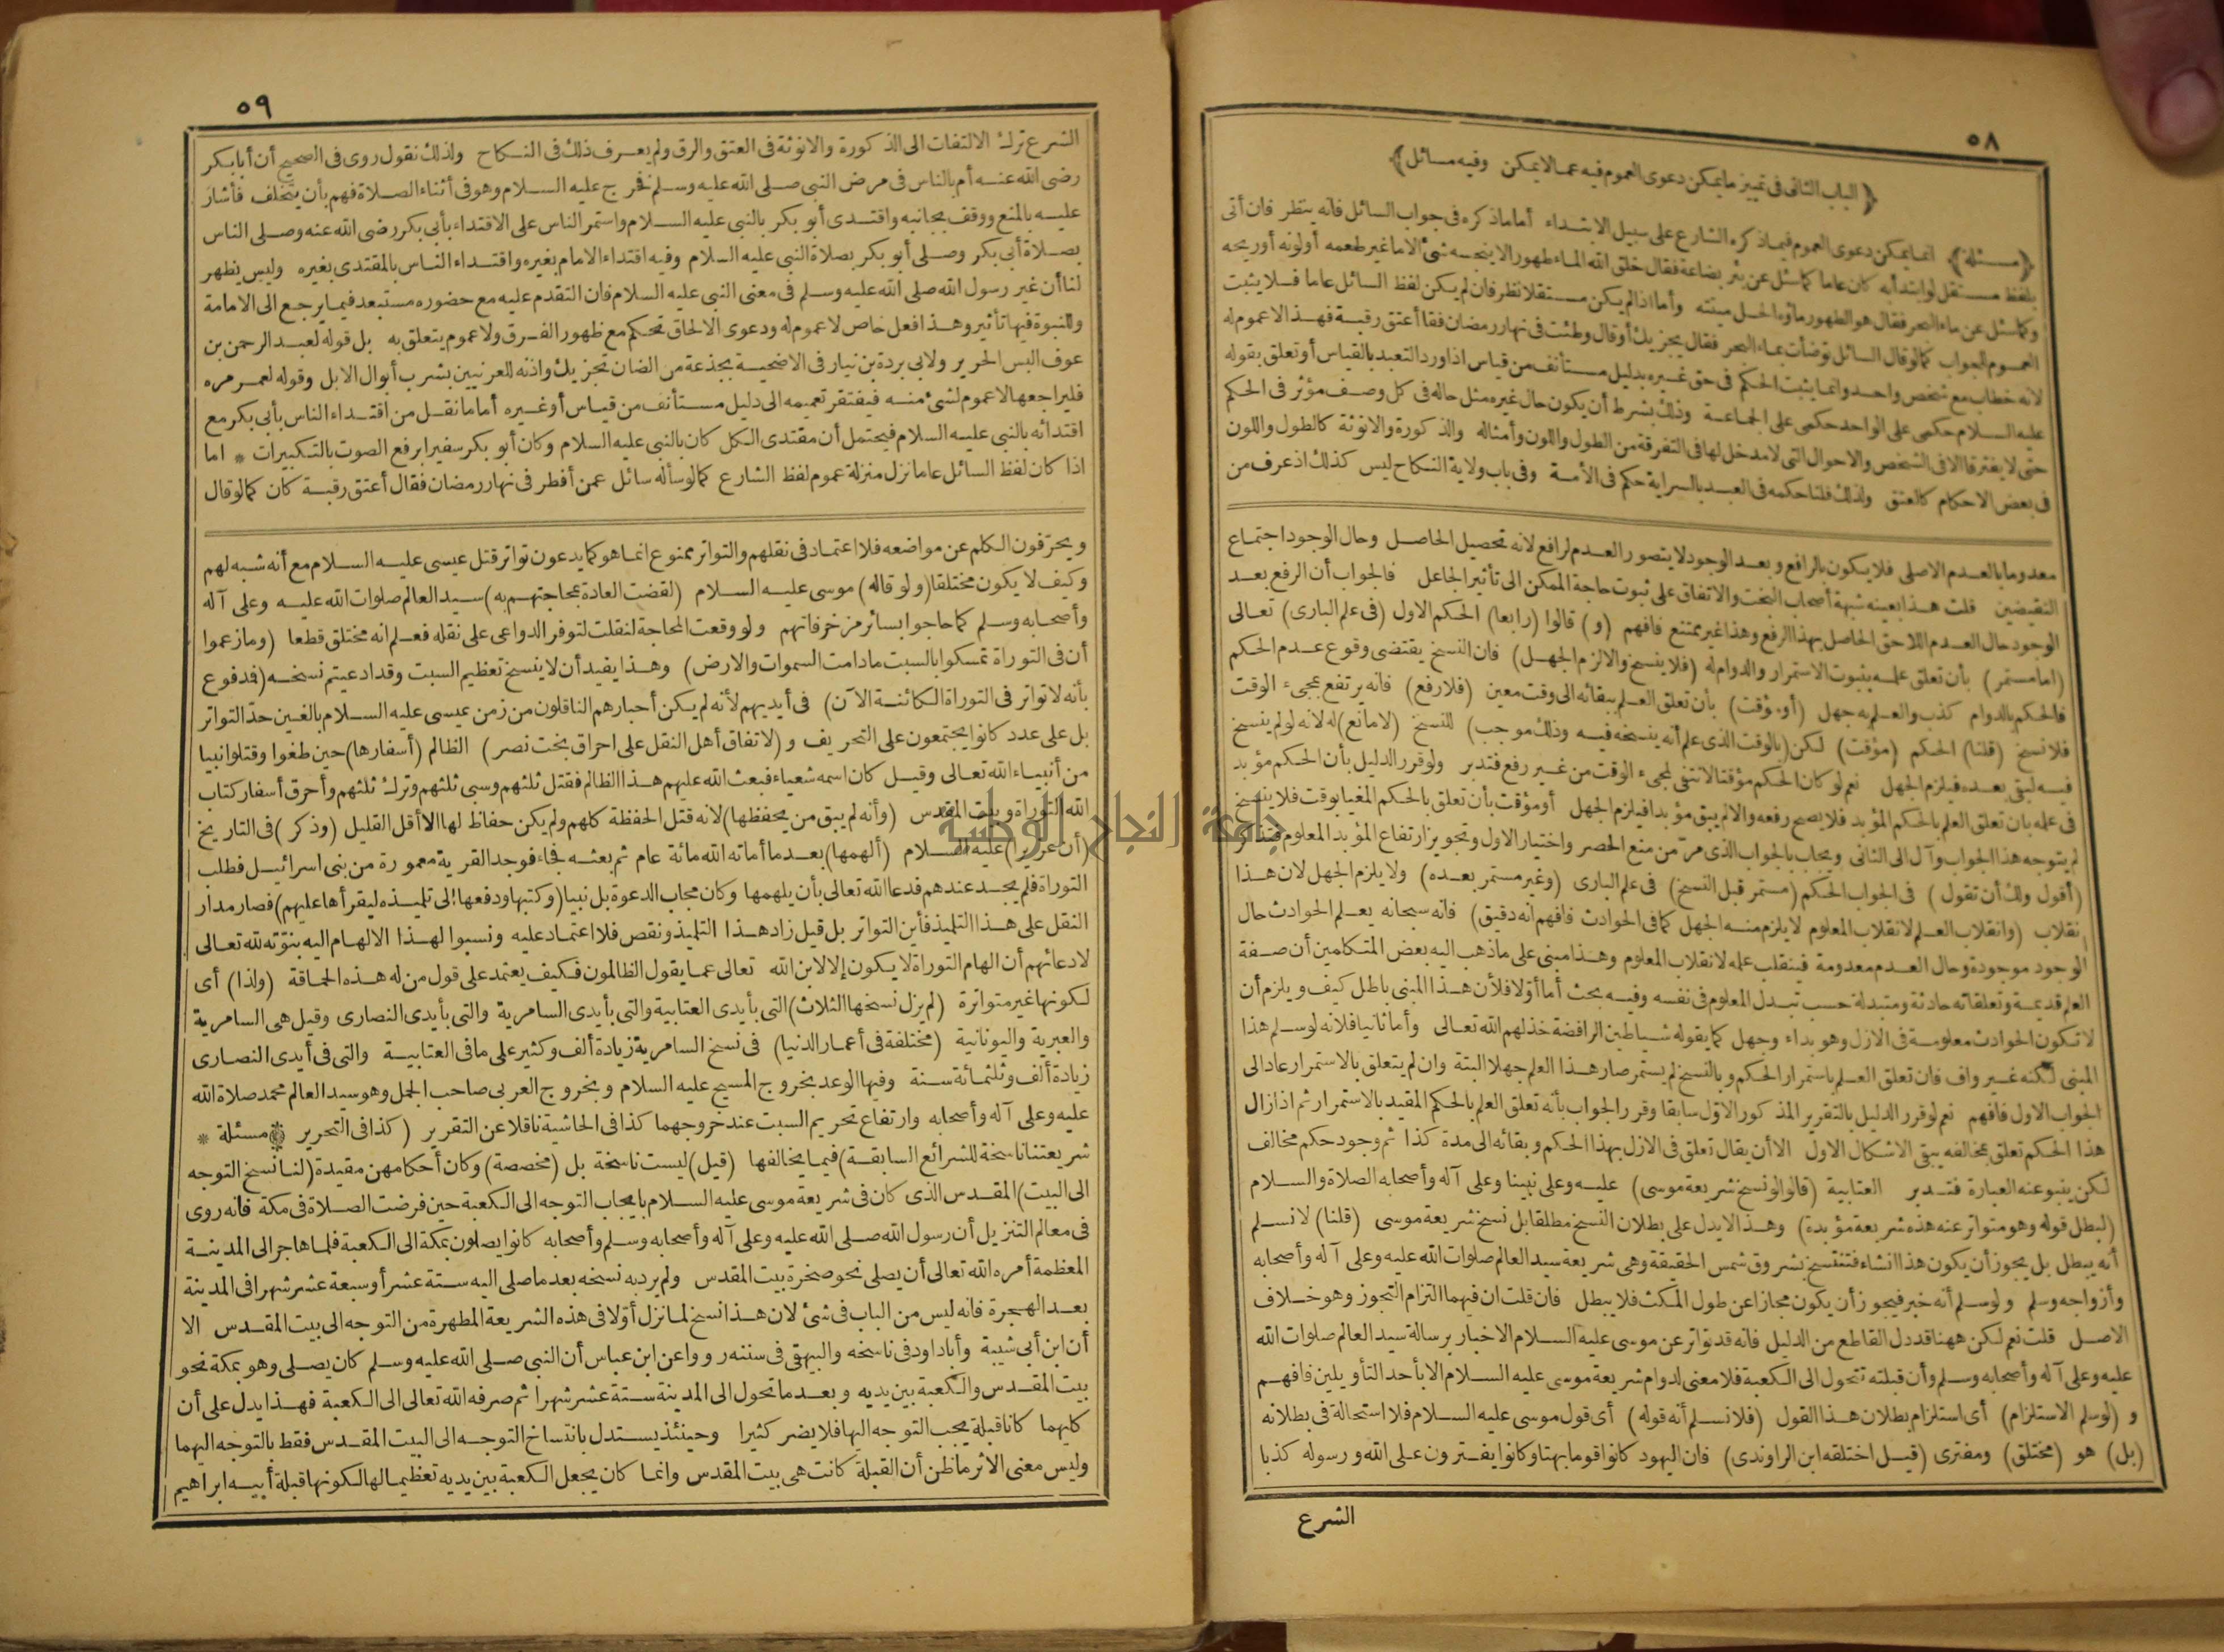 ٥٨
﴿الباب الثانى فى تمييز مايمكن دعوى العموم فيه عمالايمكن وفيه مسائل﴾
﴿مسئلة﴾ انما يمكن دعوى العموم فيما ذكره الشارع على سبيل الابتداء أما ماذكره فى جواب السائل فانه ينظر فان أتى
بلفظ مستقل لو ابتدأ به كان عاما كما سئل عن بئر بضاعة فقال خلق الله الماء طهورا لا ينجسه شئ الا ما غير طعمه أو لونه أو ريحه
وكما سئل عن ماء البحر فقال هو الطهور ماؤه الحل ميتته وأما اذا لم يكن مستقلا نظر فان لم يكن لفظ السائل عاما فلا يثبت
العموم للجواب كما لو قال السائل توضأت بماء البحر فقال يجزيك أو قال وطئت فى نهار رمضان فقال أعتق رقبة فهذا لا عموم له
لانه خطاب مع شخص واحد وانما يثبت الحكم فى حق غيره بدليل مستأنف من قياس اذا ورد التعبد بالقياس أو تعلق بقوله
عليه السلام حكمى على الواحد حكمى على الجماعة وذلك بشرط أن يكون حال غيره مثل حاله فى كل وصف مؤثر فى الحكم
حتى لا يفترقا الا فى الشخص والاحوال التى لا مدخل لها فى التفرقة من الطول واللون وأمثاله والذكورة والانوثة كالطول واللون
فى بعض الاحكام كالعتق ولذلك قلنا حكمه فى العبد بالسراية حكم فى الأمة وفى باب ولاية النكاح ليس كذلك اذ عرف من
معدوما بالعدم الاصلى فلا يكون بالرافع وبعد الوجود لا يتصور العدم لرافع لانه تحصيل الحاصل وحال الوجود اجتماع
النقيضين قلت هذا بعينه شبهة أصحاب البخت والاتفاق على ثبوت حاجة الممكن الى تأثير الجاعل فالجواب أن الرفع بعد
الوجود حال العدم اللاحق الحاصل بهذا الرفع وهذا غير ممتنع فافهم (و) قالوا (رابعا) الحكم الاول (فى علم البارى) تعالى
(اما مستمر) بأن تعلق علمه بثبوت الاستمرار والدوام له (فلا ينسخ والا لزم الجهل) فان النسخ يقتضى وقوع عدم الحكم
فالحكم بالدوام كذب والعلم به جهل (أو مؤقت) بأن تعلق العلم ببقائه الى وقت معين (فلا رفع) فانه يرتفع بمجىء الوقت
فلا نسخ (قلنا) الحكم (مؤقت) لكن (بالوقت الذى علم أنه ينسخه فيه وذلك موجب) للنسخ (لا مانع) له لانه لو لم ينسخ
فيه لبقى بعده فيلزم الجهل نعم لو كان الحكم مؤقتا لانتفى لمجىء الوقت من غير رفع فتدبر ولو قرر الدليل بأن الحكم مؤبد
فى علمه بان تعلق العلم بالحكم المؤبد فلا يصح رفعه والا لم يبق مؤبدا فيلزم الجهل أو مؤقت بأن تعلق بالحكم المغيا بوقت فلا ينسخ
لم يتوجه هذا الجواب وآل الى الثانى ويجاب بالجواب الذى مر من منع الحصر واختيار الاول وتجويز ارتفاع المؤبد المعلوم
(أقول ولك أن تقول) فى الجواب الحكم (مستمر قبل النسخ) فى علم البارى (وغير مستمر بعده) ولا يلزم الجهل لان هذا
انقلاب (وانقلاب العلم لانقلاب المعلوم لا يلزم منه الجهل كما فى الحوادث فافهم انه دقيق) فانه سبحانه يعلم الحوادث حال
الوجود موجودة وحال العدم معدومة فينقلب علمه لانقلاب المعلوم وهذا مبنى على ما ذهب اليه بعض المتكلمين أن صفة
العلم قديمة وتعلقاته حادثة ومتبدلة حسب تبدل المعلوم فى نفسه وفيه بحث أما أولا فلأن هذا المبنى باطل كيف ويلزم أن
لا تكون الحوادث معلومة فى الازل وهو بداء وجهل كما يقوله شياطين الرافضة خذلهم الله تعالى وأما ثانيا فلانه لو سلم هذا
المبنى لكنه غير واف فان تعلق العلم باستمرار الحكم وبالنسخ لم يستمر صار هذا العلم جهلا البتة وان لم يتعلق بالاستمرار عاد الى
الجواب الاول فافهم نعم لو قرر الدليل بالتقرير المذكور الاول سابقا وقرر الجواب بأنه تعلق العلم بالحكم المقيد بالاستمرار ثم اذا زال
هذا الحكم تعلق بمخالفه يبقى الاشكال الاول الا أن يقال تعلق فى الازل بهذا الحكم وبقائه الى مدة كذا ثم وجود حكم مخالف
لكن ينبو عنه العبارة فتدبر العتابية (قالوا لو نسخ شريعة موسى) عليه وعلى نبينا وعلى آله وأصحابه الصلاة والسلام
(لبطل قوله وهو متواتر عنه هذه شريعة مؤبدة) وهذا لا يدل على بطلان النسخ مطلقا بل نسخ شريعة موسى (قلنا) لا نسلم
أنه يبطل بل يجوز أن يكون هذا انشاء فتنتسخ بشروق شمس الحقيقة وهى شريعة سيد العالم صلوات الله عليه وعلى آله وأصحابه
وأزواجه وسلم ولو سلم أنه خبر فيجوز أن يكون مجازا عن طول المكث فلا يبطل فان قلت ان فيهما التزام التجوز وهو خلاف
الاصل قلت نعم لكن ههنا قد دل القاطع من الدليل فانه قد تواتر عن موسى عليه السلام الاخبار برسالة سيد العالم صلوات الله
عليه وعلى آله وأصحابه وسلم وأن قبلته تتحول الى الكعبة فلا معنى لدوام شريعة موسى عليه السلام الا بأحد التأويلين فافهم
و (لو سلم الاستلزام) أى استلزام بطلان هذا القول (فلا نسلم أنه قوله) أى قول موسى عليه السلام فلا استحالة فى بطلانه
(بل) هو (مختلق) ومفترى (قيل اختلقه ابن الراوندى) فان اليهود كانوا قوما بهتا وكانوا يفترون على الله ورسوله كذبا
الشرع
٥٩
الشرع ترك الالتفات الى الذكورة والانوثة فى العتق والرق ولم يعرف ذلك فى النكاح ولذلك نقول روى فى الصحيح أن أبا بكر
رضى الله عنه أم بالناس فى مرض النبى صلى الله عليه وسلم فخرج عليه السلام وهو فى أثناء الصلاة فهم بأن يتخلف فأشار
عليه بالمنع ووقف بجانبه واقتدى أبو بكر بالنبى عليه السلام واستمر الناس على الاقتداء بأبى بكر رضى الله عنه وصلى الناس
بصلاة أبى بكر وصلى أبو بكر بصلاة النبى عليه السلام وفيه اقتداء الامام بغيره واقتداء الناس بالمقتدى بغيره وليس يظهر
لنا أن غير رسول الله صلى الله عليه وسلم فى معنى النبى عليه السلام فان التقدم عليه مع حضوره مستبعد فيما يرجع الى الامامة
وللنبوة فيها تأثير وهذا فعل خاص لا عموم له ودعوى الالحاق تحكم مع ظهور الفرق ولا عموم يتعلق به بل قوله لعبد الرحمن بن
عوف البس الحرير ولابى بردة بن نيار فى الاضحية بجذعة من الضان تجزيك واذنه للعرنيين بشرب أبوال الابل وقوله لعمر مره
فليراجعها لا عموم لشئ منه فيفتقر تعميمه الى دليل مستأنف من قياس أو غيره أما ما نقل من اقتداء الناس بأبى بكر مع
اقتدائه بالنبى عليه السلام فيحتمل أن مقتدى الكل كان بالنبى عليه السلام وكان أبو بكر سفيرا برفع الصوت بالتكبيرات * اما
اذا كان لفظ السائل عاما نزل منزلة عموم لفظ الشارع كما لو سأله سائل عمن أفطر فى نهار رمضان فقال أعتق رقبة كان كما لو قال
ويحرّفون الكلم عن مواضعه فلا اعتماد فى نقلهم والتواتر ممنوع انما هو كما يدعون تواتر قتل عيسى عليه السلام مع أنه شبه لهم
وكيف لا يكون مختلقا (ولو قاله) موسى عليه السلام (لقضت العادة بمحاجتهم به) سيد العالم صلوات الله عليه وعلى آله
وأصحابه وسلم كما حاجوا بسائر مزخرفاتهم ولو وقعت المحاجة لنقلت لتوفر الدواعى على نقله فعلم انه مختلق قطعا (وما زعموا
أن فى التوراة تمسكوا بالسبت مادامت السموات والارض) وهذا يفيد أن لا ينسخ تعظيم السبت وقد ادعيتم نسخه (فمدفوع
بأنه لا تواتر فى التوراة الكائنة الآن) فى أيديهم لأنه لم يكن أحبارهم الناقلون من زمن عيسى عليه السلام بالغين حدّ التواتر
بل على عدد كانوا يجتمعون على التحريف و (لاتفاق أهل النقل على احراق بخت نصر) الظالم (أسفارها) حين طغوا وقتلوا نبيا
من أنبياء الله تعالى وقيل كان اسمه شعياء فبعث الله عليهم هذا الظالم فقتل ثلثهم وسبى ثلثهم وترك ثلثهم وأحرق أسفار كتاب
الله التوراة وبيت المقدس (وأنه لم يبق من يحفظها) لانه قتل الحفظة كلهم ولم يكن حفاظ لها الا أقل القليل (وذكر) فى التاريخ
(أن عزيرا) عليه السلام (ألهمها) بعد ما أماته الله مائة عام ثم بعثه فجاء فوجد القرية معمورة من بنى اسرائيل فطلب
التوراة فلم يجد عندهم فدعا الله تعالى بأن يلهمها وكان مجاب الدعوة بل نبيا (وكتبها ودفعها الى تلميذه ليقرأها عليهم) فصار مدار
النقل على هذا التلميذ فأين التواتر بل قيل زاد هذا التلميذ ونقص فلا اعتماد عليه ونسبوا لهذا الالهام اليه بنوّته لله تعالى
لادعائهم أن الهام التوراة لا يكون إلا لابن الله تعالى عما يقول الظالمون فكيف يعتمد على قول من له هذه الحماقة (ولذا) أى
لكونها غير متواترة (لم يزل نسخها الثلاث) التى بأيدى العتابية والتى بأيدى السامرية والتى بأيدى النصارى وقيل هى السامرية
والعبرية واليونانية (مختلفة فى أعمار الدنيا) فى نسخ السامرية زيادة ألف وكثير على ما فى العتابية والتى فى أيدى النصارى
زيادة ألف وثلثمائة سنة وفيها الوعد بخروج المسيح عليه السلام وبخروج العربى صاحب الجمل وهو سيد العالم محمد صلاة الله
عليه وعلى آله وأصحابه وارتفاع تحريم السبت عند خروجهما كذا فى الحاشية ناقلا عن التقرير (كذا فى التحرير * مسئلة *
شريعتنا ناسخة للشرائع السابقة) فيما يخالفها (قيل) ليست ناسخة بل (مخصصة) وكان أحكامهن مقيدة (لنا نسخ التوجه
الى البيت) المقدس الذى كان فى شريعة موسى عليه السلام بايجاب التوجه الى الكعبة حين فرضت الصلاة فى مكة فانه روى
فى معالم التنزيل أن رسول الله صلى الله عليه وعلى آله وأصحابه وسلم وأصحابه كانوا يصلون بمكة الى الكعبة فلما هاجر الى المدينة
المعظمة أمره الله تعالى أن يصلى نحو صخرة بيت المقدس ولم يرد به نسخه بعد ما صلى اليه ستة عشر أو سبعة عشر شهرا فى المدينة
بعد الهجرة فانه ليس من الباب فى شئ لان هذا نسخ لما نزل أولا فى هذه الشريعة المطهرة من التوجه الى بيت المقدس الا
أن ابن أبى شيبة وأبا داود فى ناسخه والبيهقى فى سننه رووا عن ابن عباس أن النبى صلى الله عليه وسلم كان يصلى وهو بمكة نحو
بيت المقدس والكعبة بين يديه وبعد ما تحول الى المدينة ستة عشر شهرا ثم صرفه الله تعالى الى الكعبة فهذا يدل على أن
كليهما كانا قبلة يجب التوجه اليها فلا يضر كثيرا وحينئذ يستدل بانتساخ التوجه الى البيت المقدس فقط بالتوجه اليهما
وليس معنى الاثر ما ظن أن القبلة كانت هى بيت المقدس وانما كان يجعل الكعبة بين يديه تعظيما لها لكونها قبلة أبيه ابراهيم
جامعة النجاح الوطنية